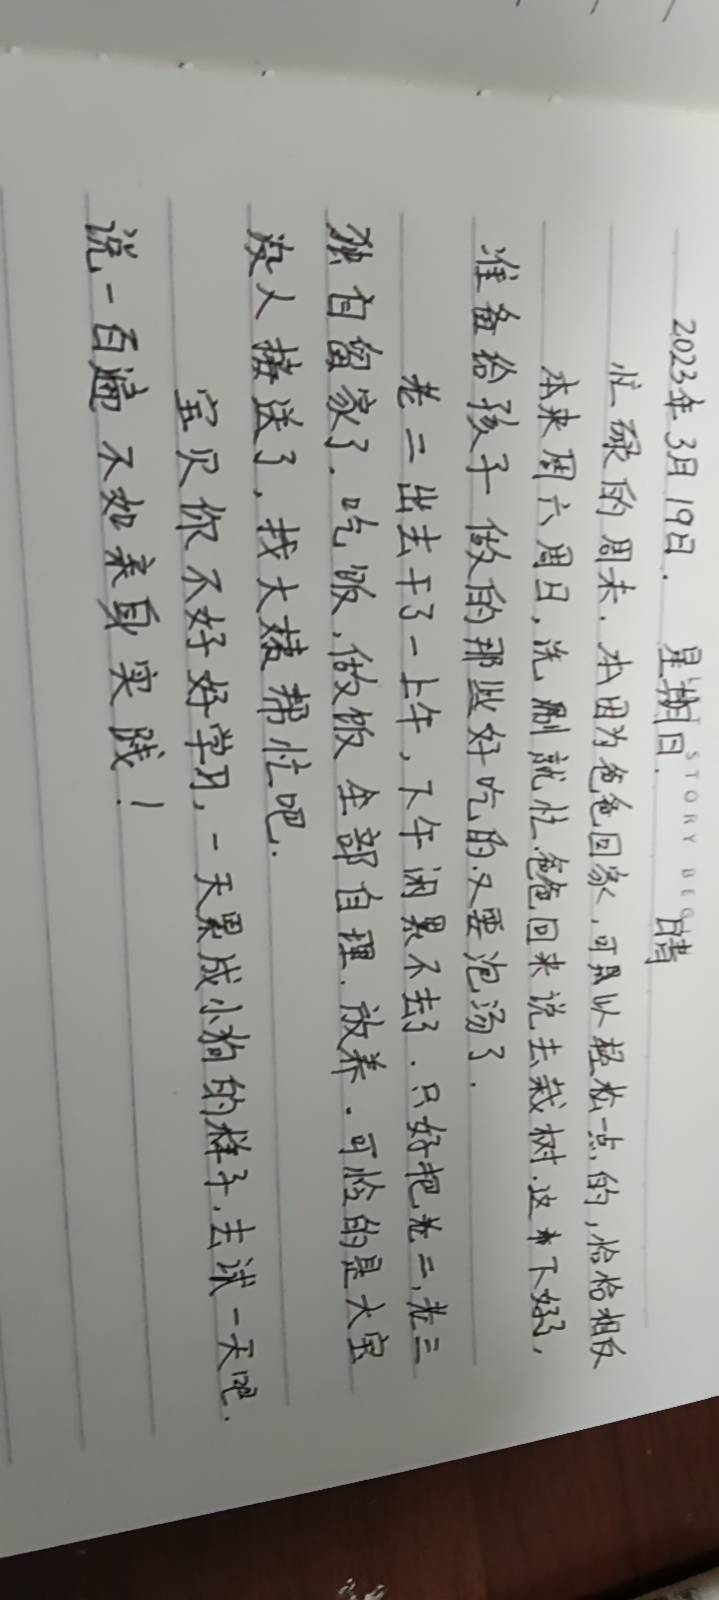 STORY BEG
2023年3月19日. 星期日. 晴
忙碌的周末. 本因为爸爸回家, 可以轻松一点的, 恰恰相反
本来周六周日, 洗刷就忙. 爸爸回来说去栽树. 这下好了,
准备给孩子做的那些好吃的又要泡汤了.
老二出去干了一上午, 下午闹累不去了. 只好把老二, 老三
独自留家了. 吃饭, 做饭全部自理. 放养. 可怜的是大宝
没人接送了, 找大娘帮忙吧.
宝贝你不好好学习, 一天累成小狗的样子, 去试一天吧.
说一百遍不如亲身实践!